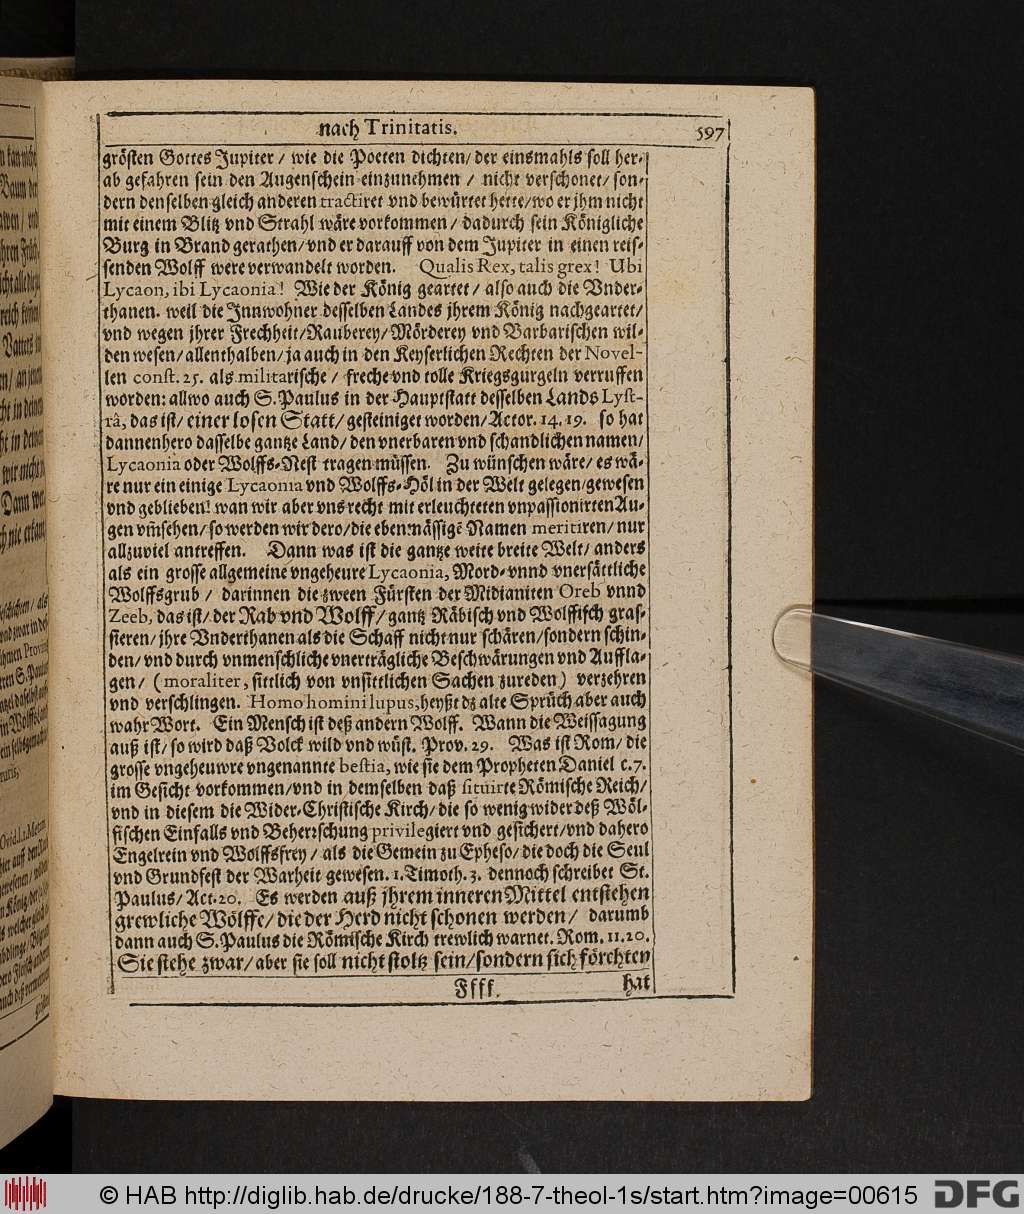 nach Trinitatis. 597
grösten Gottes Jupiter / wie die Poeten dichten / der einsmahls soll her-
ab gefahren sein den Augenschein einzunehmen / nicht verschonet / son-
dern denselben gleich anderen tractiret vnd bewürtet hette / wo er jhm nicht
mit einem Blitz vnd Strahl wäre vorkommen / dadurch sein Königliche
Burg in Brand gerathen / vnd er darauff von dem Jupiter in einen reis-
senden Wolff were verwandelt worden. Qualis Rex, talis grex! Ubi
Lycaon, ibi Lycaonia! Wie der König geartet / also auch die Vnder-
thanen. weil die Jnnwohner desselben Landes jhrem König nachgeartet /
vnd wegen jhrer Frechheit / Rauberey / Mörderey vnd Barbarischen wil-
den wesen / allenthalben / ja auch in den Keyserlichen Rechten der Novel-
len const. 25. als militarische / freche vnd tolle Kriegsgurgeln verruffen
worden: allwo auch S. Paulus in der Hauptstatt desselben Lands Lyst-
râ, das ist / einer losen Statt / gesteiniget worden / Actor. 14. 19. so hat
dannenhero dasselbe gantze Land / den vnerbaren vnd schandlichen namen /
Lycaonia oder Wolffs-Nest tragen müssen. Zu wünschen wäre / es wä-
re nur ein einige Lycaonia vnd Wolffs-Höl in der Welt gelegen / gewesen
vnd geblieben! wan wir aber vns recht mit erleuchteten vnpassionirten Au-
gen vm̃sehen / so werden wir dero / die ebenmässigẽ Namen meritiren / nur
allzuviel antreffen. Dann was ist die gantze weite breite Welt / anders
als ein grosse allgemeine vngeheure Lycaonia, Mord- vnnd vnersättliche
Wolffsgrub / darinnen die zween Fürsten der Midianiten Oreb vnnd
Zeeb, das ist / der Rab vnd Wolff / gantz Räbisch vnd Wolffisch gras-
sieren / jhre Vnderthanen als die Schaff nicht nur schären / sondern schin-
den / vnd durch vnmenschliche vnerträgliche Beschwärungen vnd Auffla-
gen / (moraliter, sittlich von vnsittlichen Sachen zureden) verzehren
vnd verschlingen. Homo homini lupus, heyßt dz alte Sprüch aber auch
wahr Wort. Ein Mensch ist deß andern Wolff. Wann die Weissagung
auß ist / so wird daß Volck wild vnd wüst. Prov. 29. Was ist Rom / die
grosse vngeheuwre vngenannte bestia, wie sie dem Propheten Daniel c. 7.
im Gesicht vorkommen / vnd in demselben daß situirte Römische Reich /
vnd in diesem die Wider-Christische Kirch / die so wenig wider deß Wöl-
fischen Einfalls vnd Beherrschung privilegiert vnd gesichert / vnd dahero
Engelrein vnd Wolffsfrey / als die Gemein zu Epheso / die doch die Seul
vnd Grundfest der Warheit gewesen. 1. Timoth. 3. dennoch schreibet St.
Paulus / Act. 20. Es werden auß jhrem inneren Mittel entstehen
grewliche Wölffe / die der Herd nicht schonen werden / darumb
dann auch S. Paulus die Römische Kirch trewlich warnet. Rom. 11. 20.
Sie stehe zwar / aber sie soll nicht stoltz sein / sondern sich förchten
Ffff. hat
© HAB http://diglib.hab.de/drucke/188-7-theol-1s/start.htm?image=00615 DFG